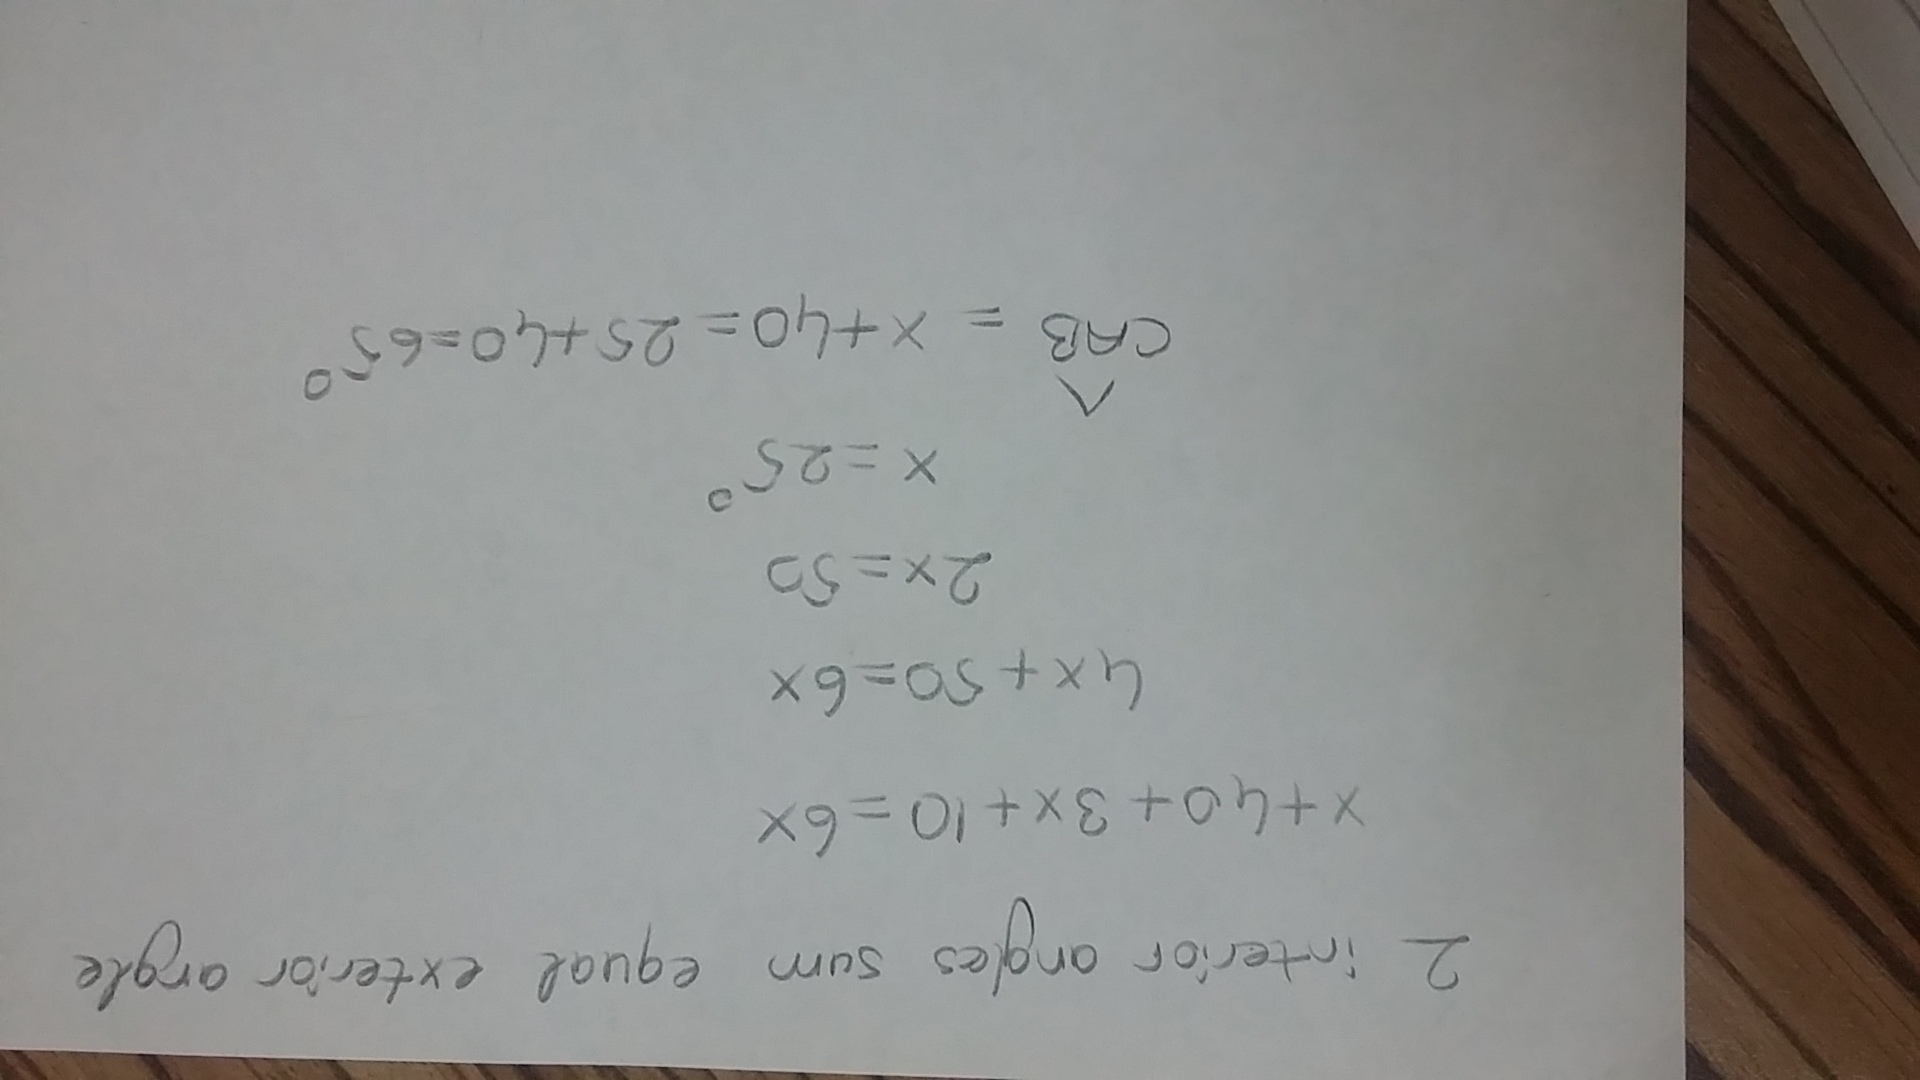 2 interior angles sum equal exterior angle
x+40+3x+10=6x
4x+50=6x
2x=50
x=25°
^
CAB = x+40=25+40=65°